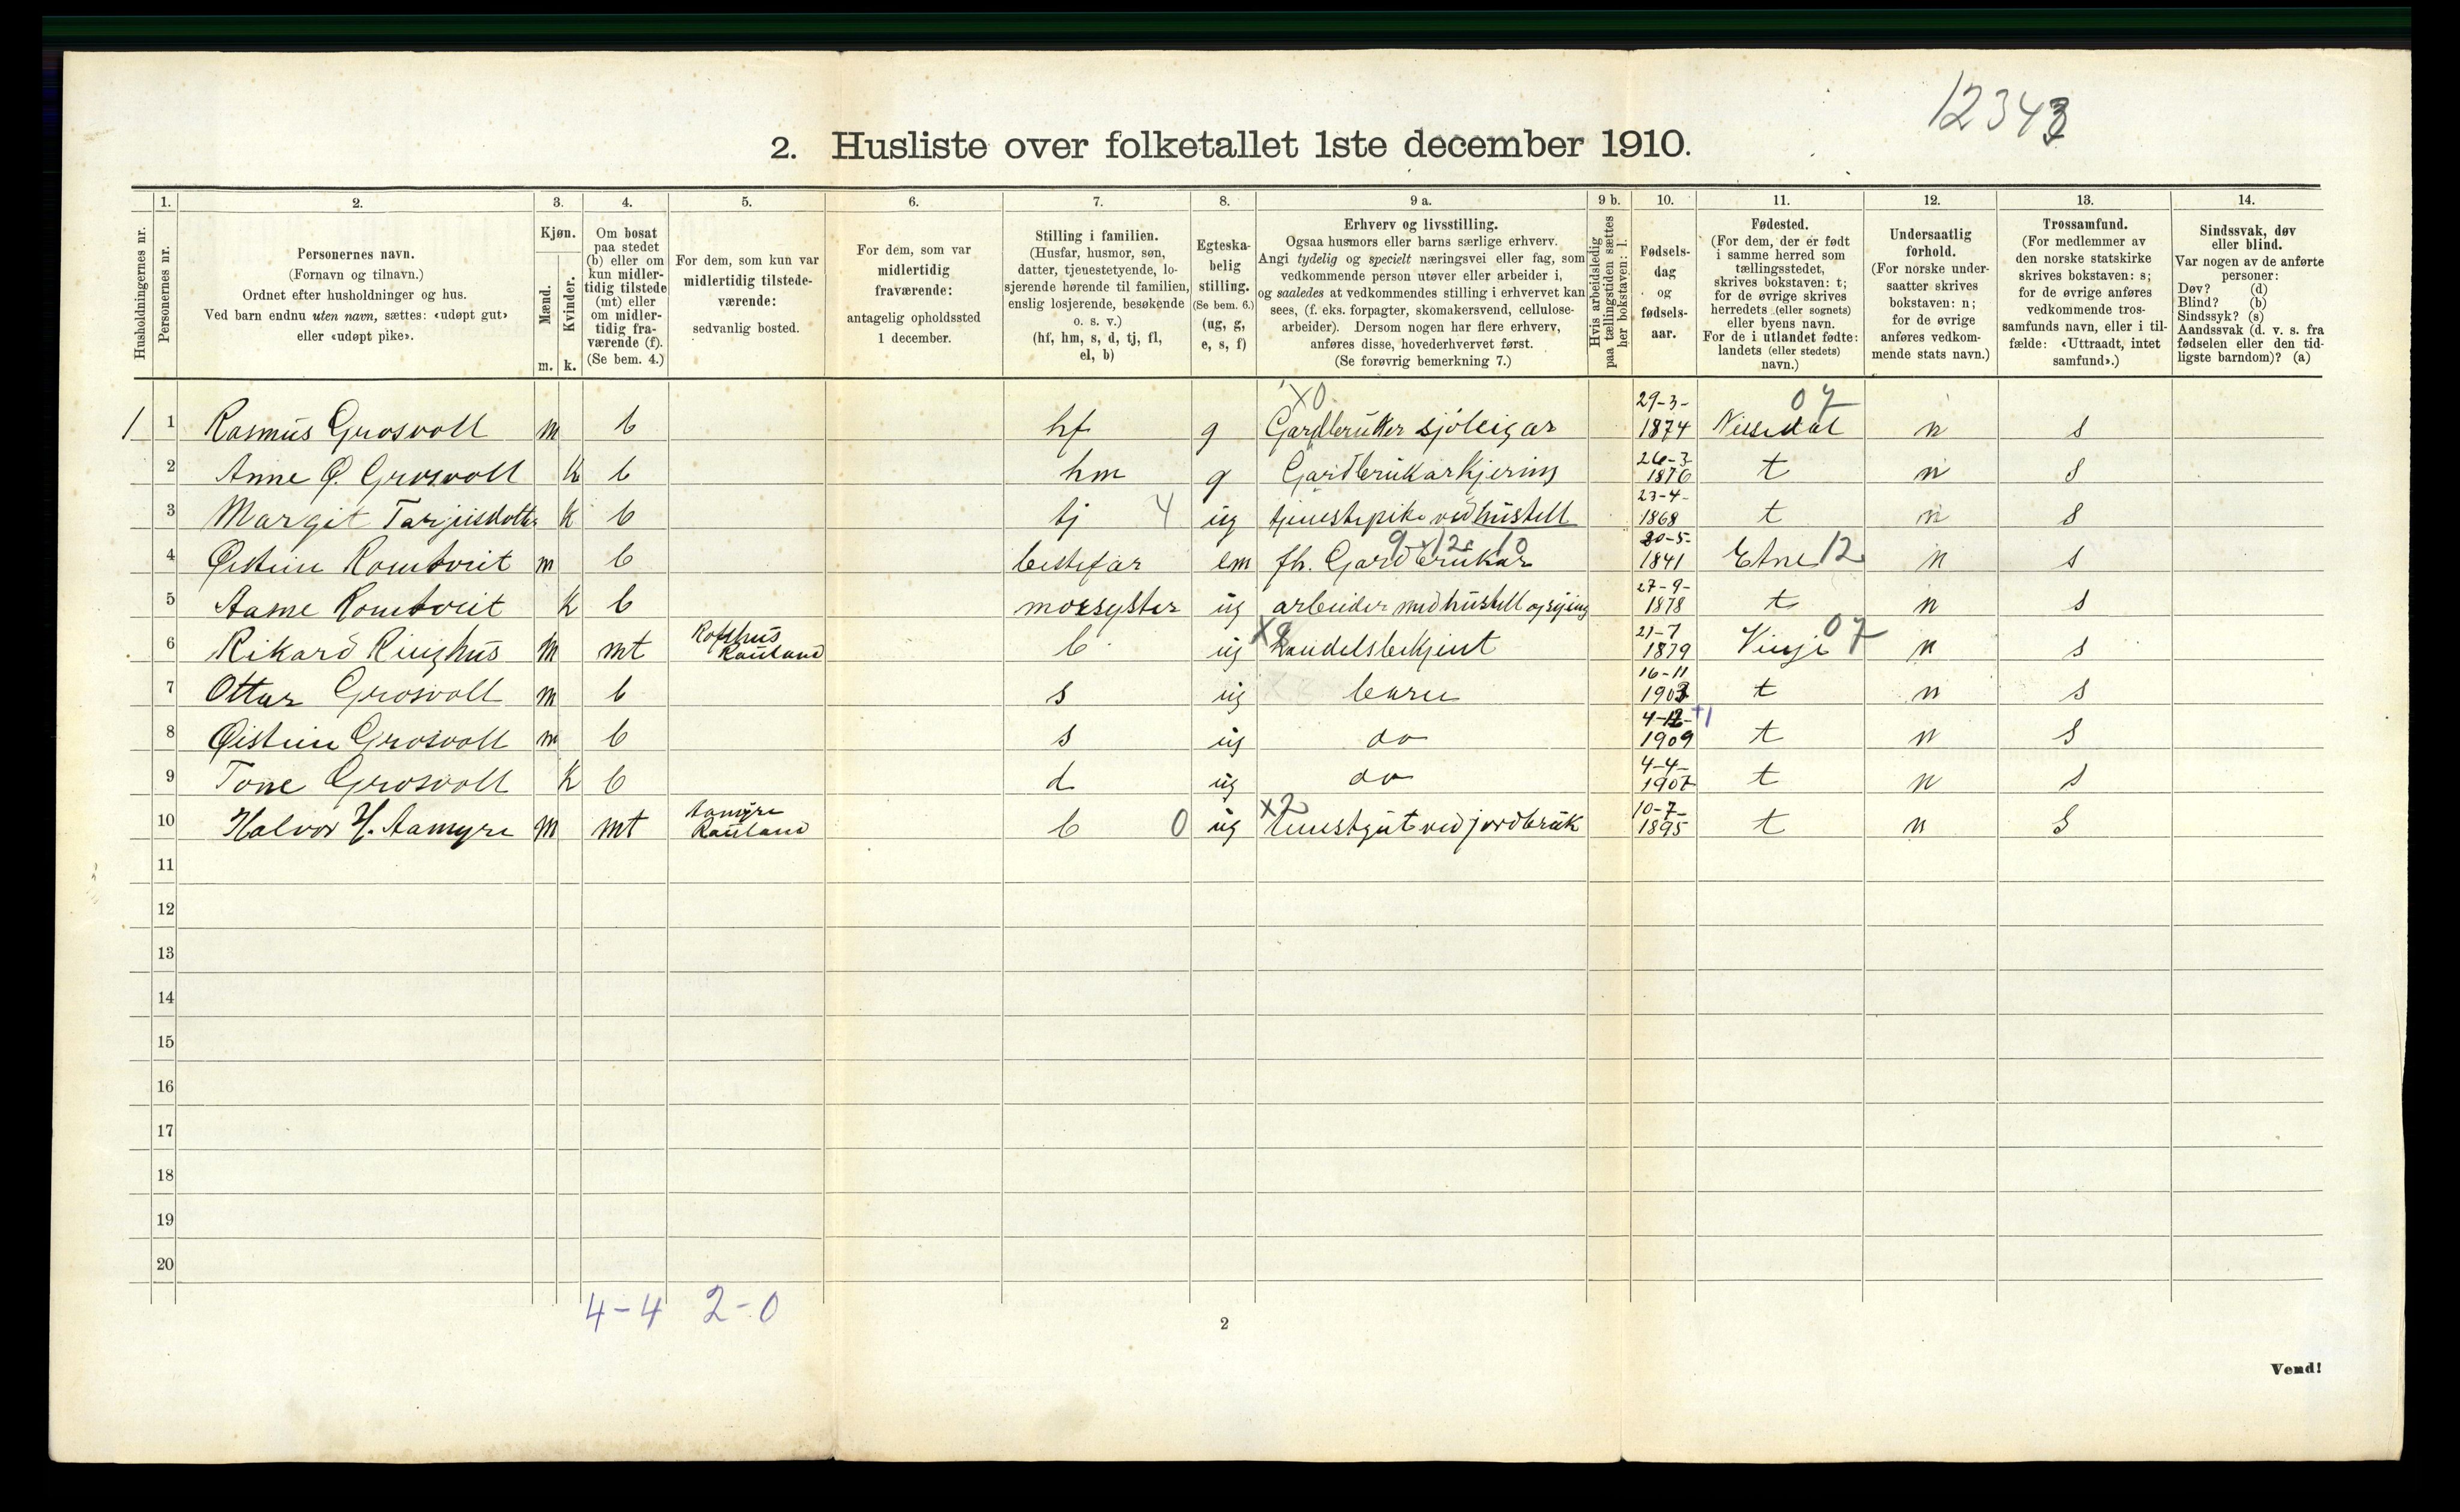 12343
2. Husliste over folketallet 1ste december 1910.
Husholdningernes nr.
1.
Personernes nr.
2.
Personernes navn.
(Fornavn og tilnavn.)
Ordnet efter husholdninger og hus.
Ved barn endnu uten navn, sættes: «udøpt gut»
eller «udøpt pike».
3.
Kjøn.
Mænd.
Kvinder.
m. k.
4.
Om bosat
paa stedet
(b) eller om
kun midler-
tidig tilstede
(mt) eller
om midler-
tidig fra-
værende (f).
(Se bem. 4.)
5.
For dem, som kun var
midlertidig tilstede-
værende:
sedvanlig bosted.
6.
For dem, som var
midlertidig
fraværende:
antagelig opholdssted
1 december.
7.
Stilling i familien.
(Husfar, husmor, søn,
datter, tjenestetyende, lo-
sjerende hørende til familien,
enslig losjerende, besøkende
o. s. v.)
(hf, hm, s, d, tj, fl,
el, b)
8.
Egteska-
belig
stilling.
(Se bem. 6.)
(ug, g,
e, s, f)
9 a.
Erhverv og livsstilling.
Ogsaa husmors eller barns særlige erhverv.
Angi tydelig og specielt næringsvei eller fag, som
vedkommende person utøver eller arbeider i,
og saaledes at vedkommendes stilling i erhvervet kan
sees, (f. eks. forpagter, skomakersvend, cellulose-
arbeider). Dersom nogen har flere erhverv,
anføres disse, hovederhvervet først.
(Se forøvrig bemerkning 7.)
9 b.
Hvis arbeidsledig
paa tællingstiden sættes
her bokstaven: l.
10.
Fødsels-
dag
og
fødsels-
aar.
11.
Fødested.
(For dem, der er født
i samme herred som
tællingsstedet,
skrives bokstaven: t;
for de øvrige skrives
herredets (eller sognets)
eller byens navn.
For de i utlandet fødte:
landets (eller stedets)
navn.)
12.
Undersaatlig
forhold.
(For norske under-
saatter skrives
bokstaven: n;
for de øvrige
anføres vedkom-
mende stats navn.)
13.
Trossamfund.
(For medlemmer av
den norske statskirke
skrives bokstaven: s;
for de øvrige anføres
vedkommende tros-
samfunds navn, eller i til-
fælde: «Uttraadt, intet
samfund».)
14.
Sindssvak, døv
eller blind.
Var nogen av de anførte
personer:
Døv? (d)
Blind? (b)
Sindssyk? (s)
Aandssvak (d. v. s. fra
fødselen eller den tid-
ligste barndom)? (a)
X0 29-3- 07
1 1 Rasmus Grosvoll m b hf g Gardbruker sjöleigar 1874 Nissedal n s
2 Anne Ø. Grosvoll k b hm g Gardbrukarkjering 26-3 1876 t n s
3 Margit Tarjeisdotter k b tj 4 ug tjenestepike ved hustell 23-4- 1868 t n s
9-x12c 10
4 Øistein Romtveit m b bestefar em fh. Gardbrukar 30-5- 1841 Etne 12 n s
5 Aasne Romtveit k b morsyster ug arbeider med hustell og sying 27-9- 1878 t n s
6 Rikard Ringhus m mt Rauland b ug X8 handelsbetjent 21-7 1879 Vinje 07 n s
7 Ottar Grosvoll m b s ug barn 16-11 1903 t n s
8 Øistein Grosvoll m b s ug do 4-12- +1 1909 t n s
9 Tone Grosvoll k b d ug do 4-4- 1907 t n s
10 Halvor H. Aamyre m mt Aamyre Rauland b 0 ug X2 tenestgut ved jordbruk 10-7- 1895 t n s
11
12
13
14
15
16
17
18
19
20
4-4 2-0
2
Vend!